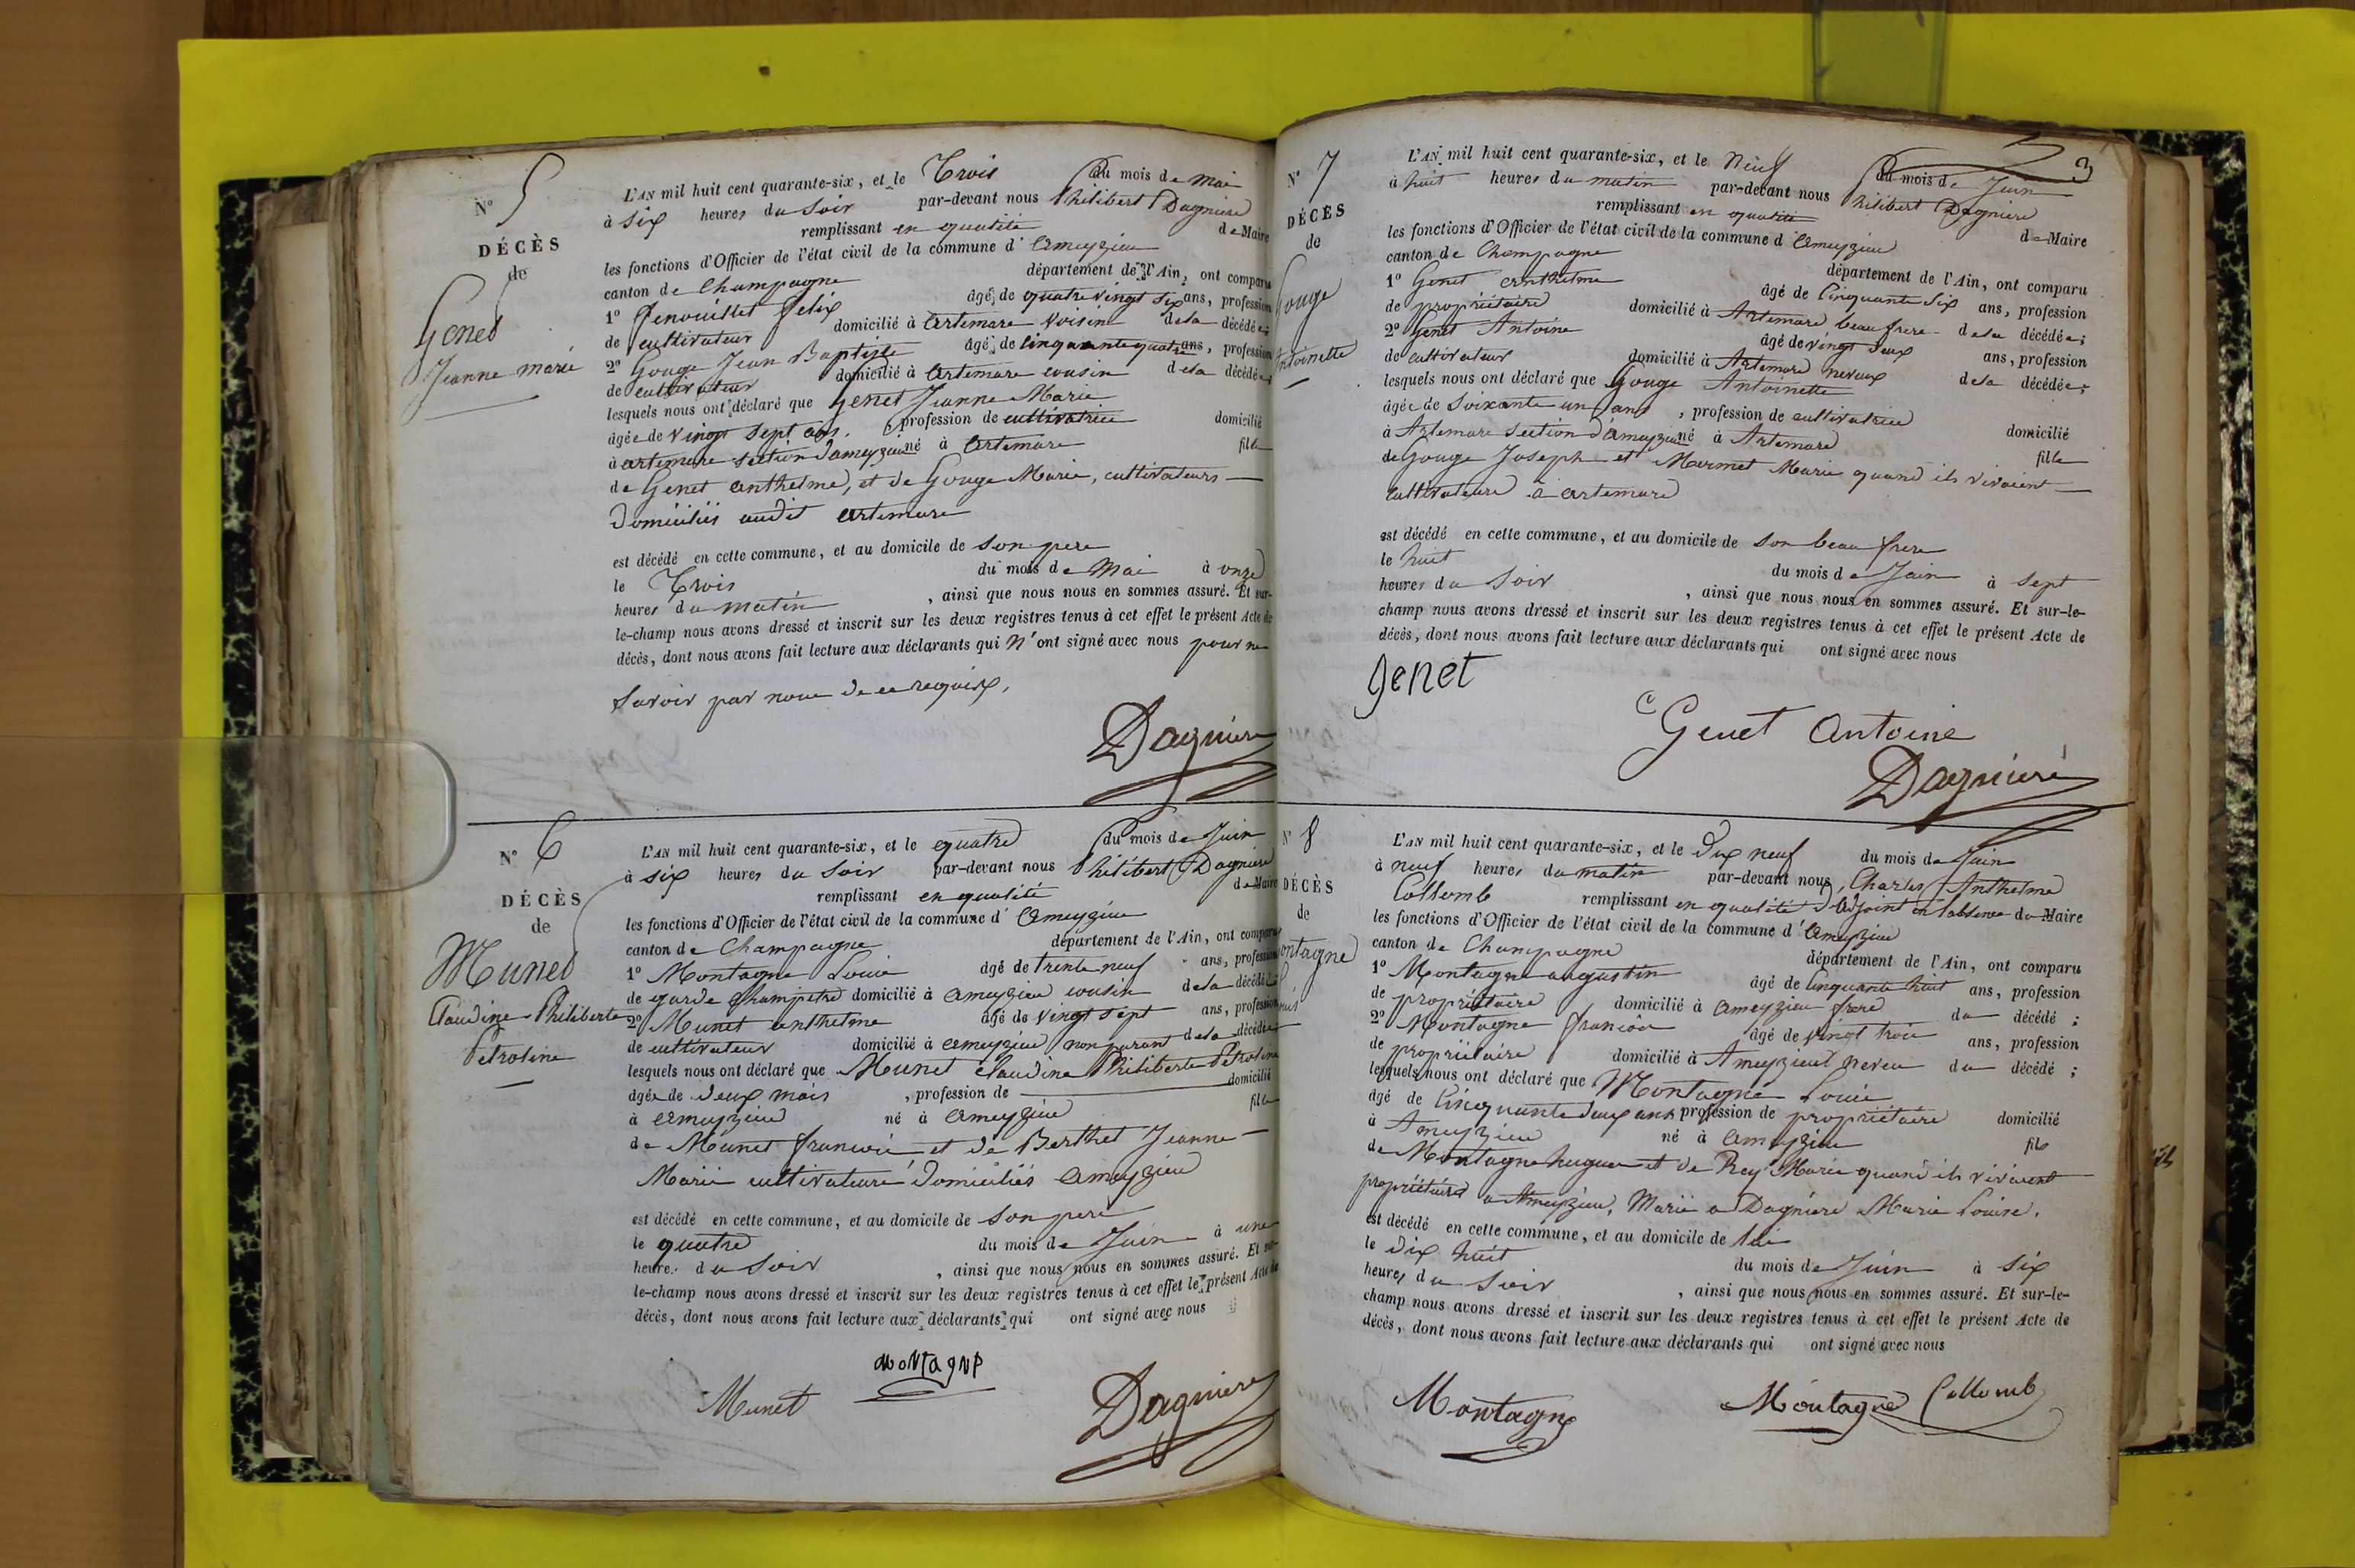 N° 5
DÉCÈS
de
Genet
Jeanne marie
L'AN mil huit cent quarante-six, et le Trois du mois de Mai
à six heures du Soir par-devant nous Philibert Dagniere
remplissant en qualité de Maire
les fonctions d'Officier de l'état civil de la commune d'Ameyzieu
canton de Champagne département de l'Ain, ont comparu
1° Fenouillet Felix âgé de quatre vingt six ans, profession
de cultivateur domicilié à Artemare voisin de la décédée;
2° Gouge Jean Baptiste âgé de cinquante quatre ans, profession
de cultivateur domicilié à Artemare cousin de la décédée;
lesquels nous ont déclaré que Genet Jeanne Marie
âgée de vingt sept ans, profession de cultivatrice domicilié
à artemare section d'ameyzieu né à Artemare fille
de Genet Anthelme, et de Gouge Marie, cultivateurs
domiciliés audit Artemare
est décédé en cette commune, et au domicile de son pere
le Trois du mois de Mai à onze
heures du matin, ainsi que nous nous en sommes assuré. Et sur-
le-champ nous avons dressé et inscrit sur les deux registres tenus à cet effet le présent Acte de
décès, dont nous avons fait lecture aux déclarants qui n'ont signé avec nous pour ne
savoir par nous de ce requis,
Dagniere
N° 6
DÉCÈS
de
Munet
Claudine Philiberte
Petroline
L'AN mil huit cent quarante-six, et le quatre du mois de Juin
à six heures du Soir par-devant nous Philibert Dagniere
remplissant en qualité de Maire
les fonctions d'Officier de l'état civil de la commune d'Ameyzieu
canton de Champagne département de l'Ain, ont comparu
1° Montagne Louis âgé de trente neuf ans, profession
de garde champetre domicilié à Ameyzieu cousin de la décédée
2° Munet Anthelme âgé de vingt sept ans, profession
de cultivateur domicilié à Ameyzieu non parent de la décédée
lesquels nous ont déclaré que Munet Claudine Philiberte Petroline
âgée de deux mois, profession de domicilié
à Ameyzieu né à Ameyzieu fille
de Munet francois et de Berthet Jeanne
Marie cultivateurs domiciliés Ameyzieu
est décédé en cette commune, et au domicile de son pere
le quatre du mois de Juin à une
heure du Soir, ainsi que nous nous en sommes assuré. Et sur-
le-champ nous avons dressé et inscrit sur les deux registres tenus à cet effet le présent Acte de
décès, dont nous avons fait lecture aux déclarants qui ont signé avec nous
Montagne
Munet
Dagniere
3
N° 7
DÉCÈS
de
Gouge
Antoinette
L'AN mil huit cent quarante-six, et le neuf du mois de Juin
à huit heures du matin par-devant nous Philibert Dagniere
remplissant en qualité de Maire
les fonctions d'Officier de l'état civil de la commune d'Ameyzieu
canton de Champagne département de l'Ain, ont comparu
1° Genet Anthelme âgé de Cinquante Six ans, profession
de propriétaire domicilié à Artemare beau frere de la décédée;
2° Genet Antoine âgé de vingt deux ans, profession
de cultivateur domicilié à Artemare neveux de la décédée;
lesquels nous ont déclaré que Gouge Antoinette
âgée de Soixante un ans, profession de cultivatrice domicilié
à Artemare section d'ameyzieu né à Artemare fille
de Gouge Joseph et Mermet Marie quand ils vivaient
cultivateurs à artemare
est décédé en cette commune, et au domicile de son beau frere
le huit du mois de Juin à sept
heures du Soir, ainsi que nous nous en sommes assuré. Et sur-le-
champ nous avons dressé et inscrit sur les deux registres tenus à cet effet le présent Acte de
décès, dont nous avons fait lecture aux déclarants qui ont signé avec nous
genet
Genet Antoine
Dagniere
N° 8
DÉCÈS
de
ontagne
L'AN mil huit cent quarante-six, et le dix neuf du mois de Juin
à neuf heures du matin par-devant nous, Charles Anthelme
Collomb remplissant en qualité d'Adjoint en l'absence du Maire
les fonctions d'Officier de l'état civil de la commune d'Ameyzieu
canton de Champagne département de l'Ain, ont comparu
1° Montagne augustin âgé de Cinquante huit ans, profession
de propriétaire domicilié à Ameyzieu frere du décédé;
2° Montagne francois âgé de vingt trois ans, profession
de propriétaire domicilié à Ameyzieu neveu du décédé;
lesquels nous ont déclaré que Montagne Louis
âgé de Cinquante deux ans profession de propriétaire domicilié
à Ameyzieu né à Ameyzieu fils
de Montagne hugues et de Rey Marie quand ils vivaient
propriétaires a Ameyzieu, Marié a Dagniere Marie Louise.
est décédé en cette commune, et au domicile de lui
le dix huit du mois de Juin à six
heures du Soir, ainsi que nous nous en sommes assuré. Et sur-le-
champ nous avons dressé et inscrit sur les deux registres tenus à cet effet le présent Acte de
décès, dont nous avons fait lecture aux déclarants qui ont signé avec nous
Montagne
Montagne
Collomb